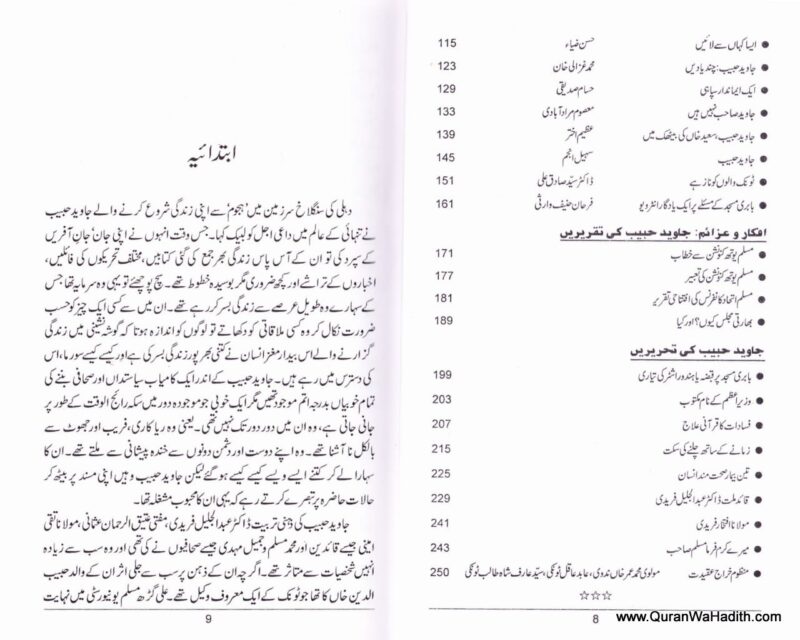 ایسا کہاں سے لائیں حسن ضیاء 115
جاوید حبیب: چند یادیں محمد غزالی خان 123
ایک ایماندار سپاہی حسام صدیقی 129
جاوید صاحب نہیں ہیں معصوم مرادآبادی 133
جاوید حبیب، سعید خاں کی بیٹھک میں عظیم اختر 139
جاوید حبیب سہیل انجم 145
ٹونک والوں کو ناز ہے ڈاکٹر سیّد صادق علی 151
بابری مسجد کے مسئلے پر ایک یادگار انٹرویو فرحان حنیف وارثی 161
افکار و عزائم: جاوید حبیب کی تقریریں
مسلم یوتھ کنونشن سے خطاب 171
مسلم یوتھ کنونشن کی تعبیر 177
مسلم اتحاد کانفرنس کی افتتاحی تقریر 181
بھارتی مجلس کیوں؟ اور کیا 189
جاوید حبیب کی تحریریں
بابری مسجد پر قبضہ یا ہندو راشٹر کی تیاری 199
وزیر اعظم کے نام مکتوب 203
فسادات کا قرآنی علاج 207
زمانے کے ساتھ چلنے کی سکت 215
تین بیمار صحت مند انسان 225
قائد ملت ڈاکٹر عبدالجلیل فریدی 229
مولانا افتخار فریدی 241
میرے کرم فرما مسلم صاحب 243
منظوم خراج عقیدت مولوی محمد عمر خاں ندوی، عابد عاقل ٹونکی، سیّد عارف شاہ طالب ٹونکی 250
☆☆☆
8
ابتدائیہ
دہلی کی سنگلاخ سرزمین میں 'ہجوم' سے اپنی زندگی شروع کرنے والے جاوید حبیب
نے تنہائی کے عالم میں داعی اجل کو لبیک کہا۔ جس وقت انہوں نے اپنی جان' جانِ آفریں
کے سپرد کی تو ان کے آس پاس زندگی بھر جمع کی گئی کتابیں، مختلف تحریکوں کی فائلیں،
اخباروں کے تراشے اور کچھ ضروری مگر بوسیدہ خطوط تھے۔ سچ پوچھئے تو یہی وہ سرمایہ تھا جس
کے سہارے وہ طویل عرصے سے زندگی بسر کر رہے تھے۔ ان میں سے کسی ایک چیز کو حسب
ضرورت نکال کر وہ کسی ملاقاتی کو دکھاتے تو لوگوں کو اندازہ ہوتا کہ گوشہ نشینی میں زندگی
گزارنے والے اس بیدار مغز انسان نے کتنی بھرپور زندگی بسر کی ہے اور کیسے کیسے سورما، اس
کی دسترس میں رہے ہیں۔ جاوید حبیب کے اندر ایک کامیاب سیاستداں اور صحافی بننے کی
تمام خوبیاں بدرجہ اتم موجود تھیں مگر ایک خوبی جو موجودہ دور میں سکہ رائج الوقت کے طور پر
جانی جاتی ہے، وہ ان میں دور دور تک نہیں تھی۔ یعنی وہ ریاکاری، فریب اور جھوٹ سے
بالکل نا آشنا تھے۔ وہ اپنے دوست اور دشمن دونوں سے خندہ پیشانی سے ملتے تھے۔ ان کا
سہارا لے کر کتنے ایسے ویسے کیسے کیسے ہوگئے لیکن جاوید حبیب وہیں اپنی مسند پر بیٹھ کر
حالات حاضرہ پر تبصرے کرتے رہے کہ یہی ان کا محبوب مشغلہ تھا۔
جاوید حبیب کی ذہنی تربیت ڈاکٹر عبدالجلیل فریدی، مفتی عتیق الرحمان عثمانی، مولانا تقی
امینی جیسے قائدین اور محمد مسلم و جمیل مہدی جیسے صحافیوں نے کی تھی اور وہ سب سے زیادہ
انہیں شخصیات سے متاثر تھے۔ اگرچہ ان کے ذہن پر سب سے جلی اثر ان کے والد حبیب
الدین خاں کا تھا جو ٹونک کے ایک معروف وکیل تھے۔ علی گڑھ مسلم یونیورسٹی میں نہایت
9
www.QuranWaHadith.com